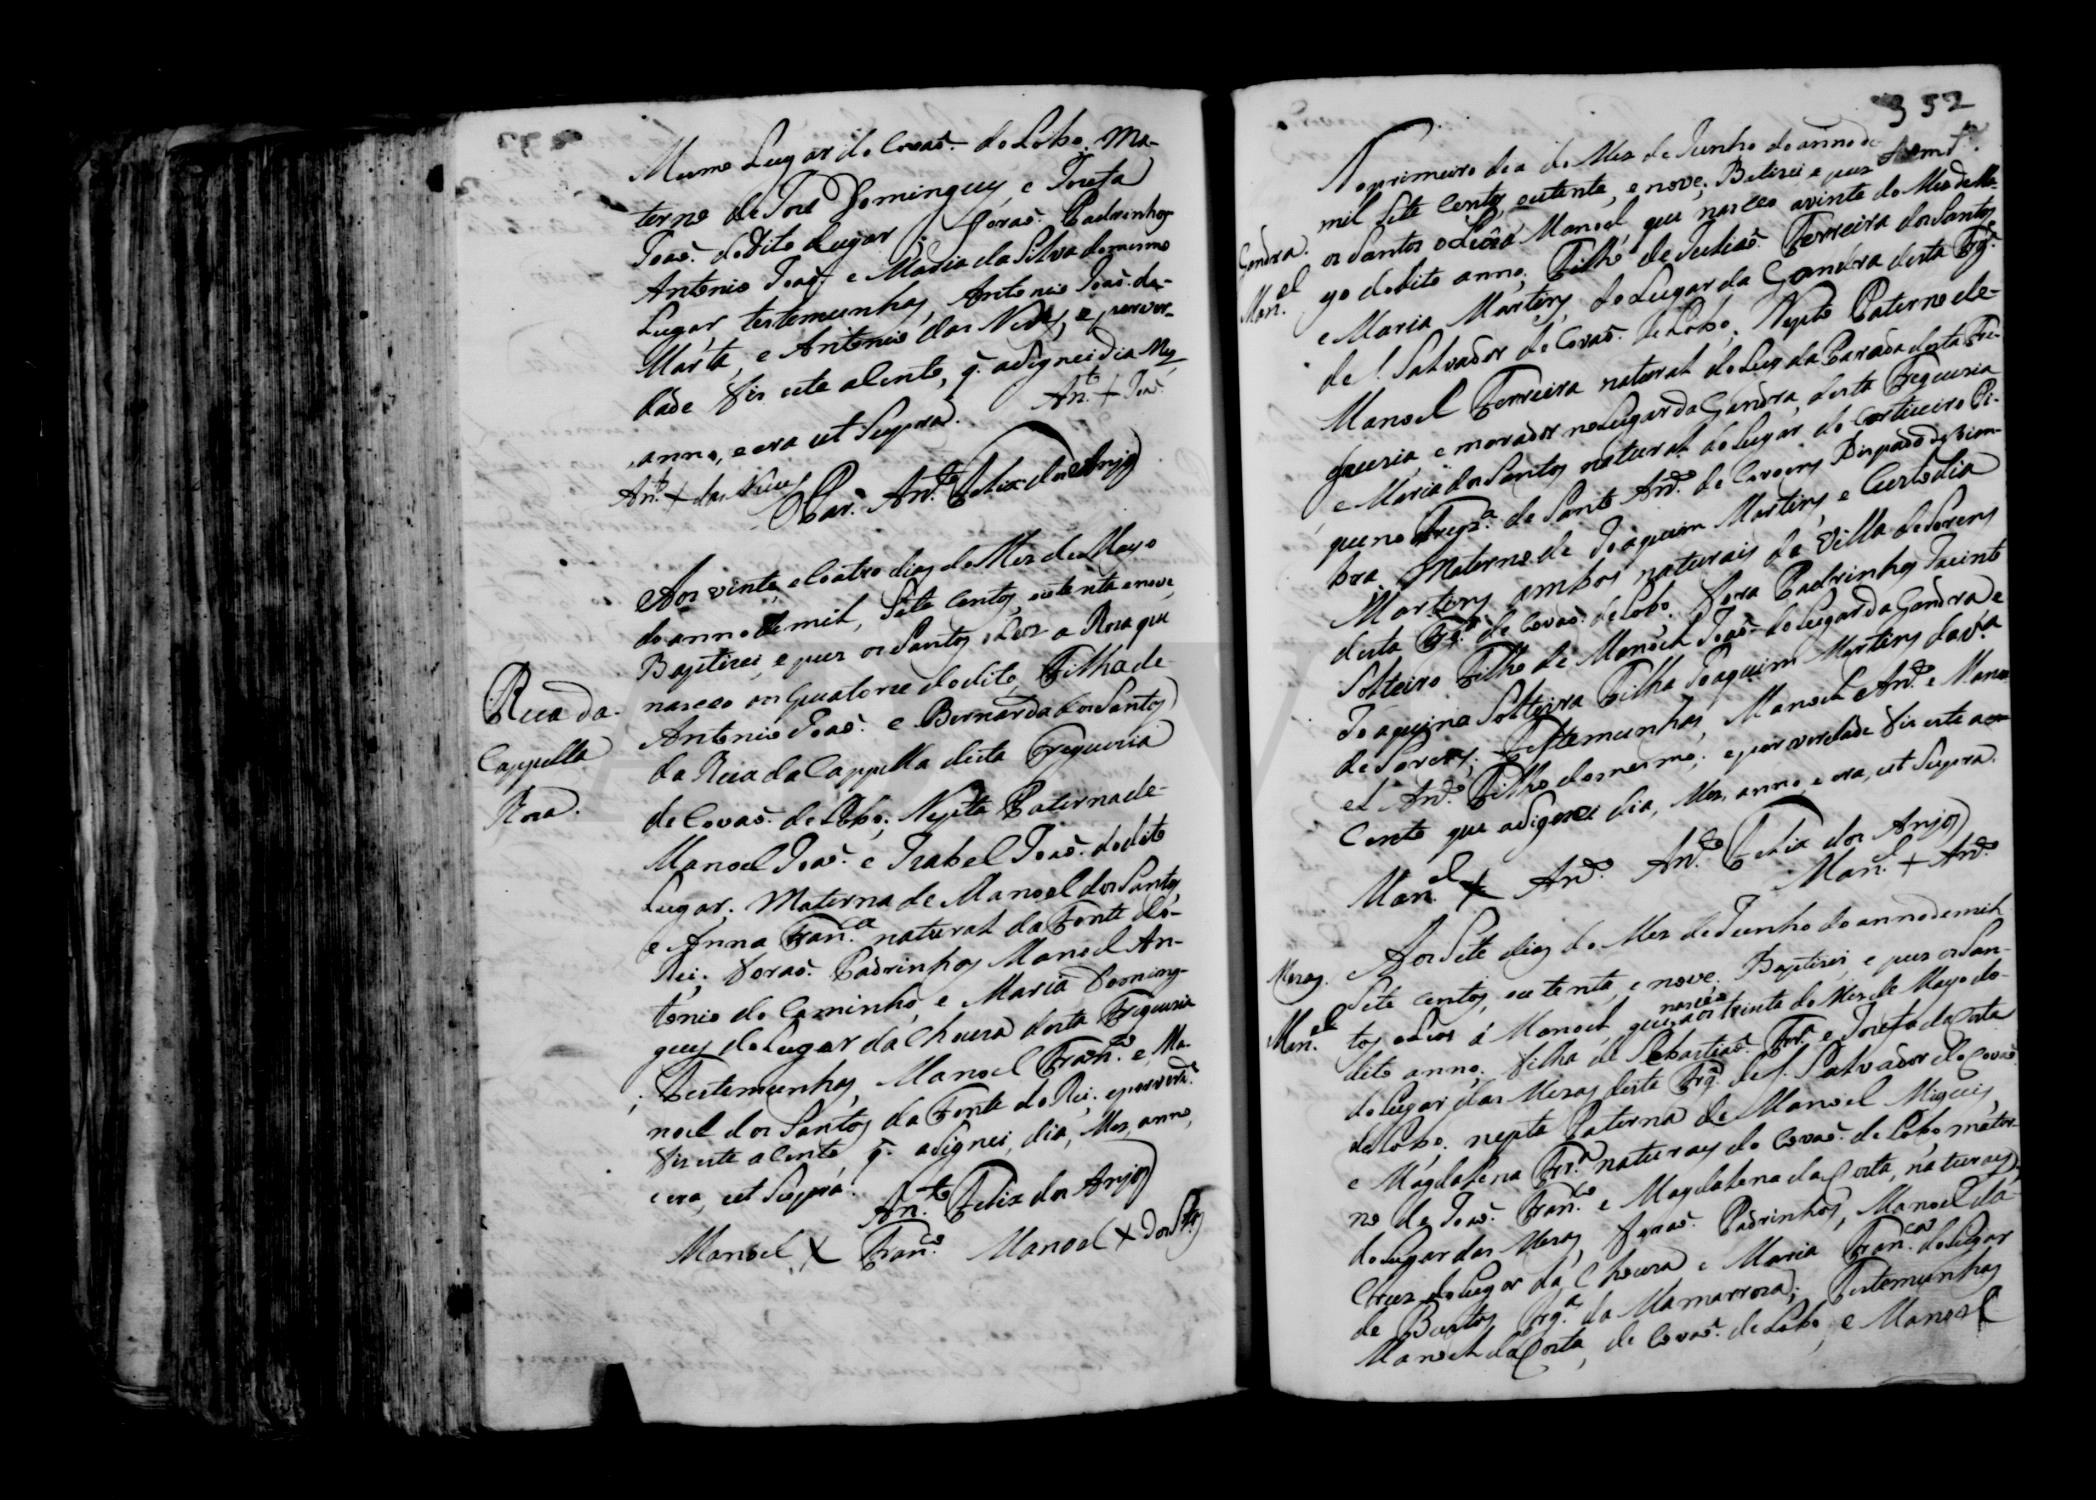 Mesmo Lugar do Covaõ do Lobo. Ma-
terno de Joze Domingues, e Josefa
Joaõ. do dito Lugar foraõ Padrinhos
Antonio Joaõ. e Maria da Silva do mesmo
Lugar testemunhas, Antonio Joaõ. da-
Marta, e Antonio das Neves, e por ver-
dade fis este acento, q. asignei dia Mes
anno, e era ut Supra.
An.to + Joaõ.
An.to + das Neves
Par. An.to Felix dos Anjos
Aos vinte, e coatro dias do Mes de Mayo
do anno de mil, Sete centos, setenta e nove,
Baptizei, e pus os Santos oLeos a Roza que
nasceo aos quatorze do dito, Filha de
Antonio Joaõ. e Bernarda dos Santos
da Rua da Cappella desta Freguezia
de Covaõ. de Lobo; Nepta Paterna de-
Manoel Joaõ. e Izabel Joaõ. do dito
Lugar; Materna de Manoel dos Santos
e Anna Fran.ca natural da Fonte do-
Rei; foraõ. Padrinhos Manoel An-
tonio do Caminho, e Maria Doming-
gues do Lugar da Chouza desta Freguezia
; Testemunhas, Manoel Fran.co e Ma-
noel dos Santos da Fonte do Rei. e por verd.e
fis este acento, q. asignei, dia, Mes, anno,
e era, ut Supra.
An.to Felix dos Anjos
Manoel X Fran.co Manoel X dos St.os
Rua da.
Cappella
Roza.
352
No primeiro dia do Mes de Junho do anno de
mil Sete Centos, setenta, e nove; Batizei e pus
os Santos oLeos a Manoel, que nasceo a vinte do Mes de Ma-
yo do dito anno; Filho de Juliaõ. Ferreira dos Santos
e Maria Martins, do Lugar da Gandra desta Frg.a
de S. Salvador de Covaõ. de Lobo; Nepto Paterno de-
Manoel Ferreira natural do Lug. da Parada desta Fre-
guezia, e morador no Lugar da Gandra, desta Freguezia
e Maria dos Santos natural do Lugar do Corticeiro Pi-
queno Fregz.a de Santo An.to de Covoens Bispado de Coim-
bra. Materno de Joaquim Martins, e Custodia
Martins ambos naturais da Villa de Sorens
desta Frg.a de Covaõ. de Lobo; fora Padrinhos Jacinto
Solteiro Filho de Manoel Joaõ. do Lugar da Gandra e
Joaquina Solteira Filha Joaquim Martins da V.a
de Sorens; Testemunhas, Manoel An.to e Mano-
el An.to Filho do mesmo; e por verdade fis este a-
cento que asignei dia, Mes, anno, e era, ut Supra.
An.to Felix dos Anjos
Man.el X An.to Man.el + An.to
Gandra.
Man.el
Aos Sete dias do Mes de Junho do anno de mil
Sete Centos, setenta, e nove; Baptizei, e pus os San-
tos oLeos á Manoel, que nasceo aos trinta do Mes de Mayo do-
dito anno; filha de Sebastiaõ. Fr.a e Josefa da Costa
do Lugar das Mezas desta Frg.a de S. Salvador do Covaõ
de Lobo; nepta Paterna de Manoel Migueis,
e Magdalena Fr.a naturaes do Covaõ. de Lobo mater-
no de Joaõ. Fran.co e Magdalena da Costa, naturaes
do Lugar das Mezas, foraõ. Padrinhos, Manoel da-
Cruz do Lugar da Chouza e Maria Fran.ca do Lugar
de Bustos Frg.a da Mamarroza; Testemunhas
Manoel da Costa, de Covaõ. de Lobo, e Manoel
Mezas.
Man.el